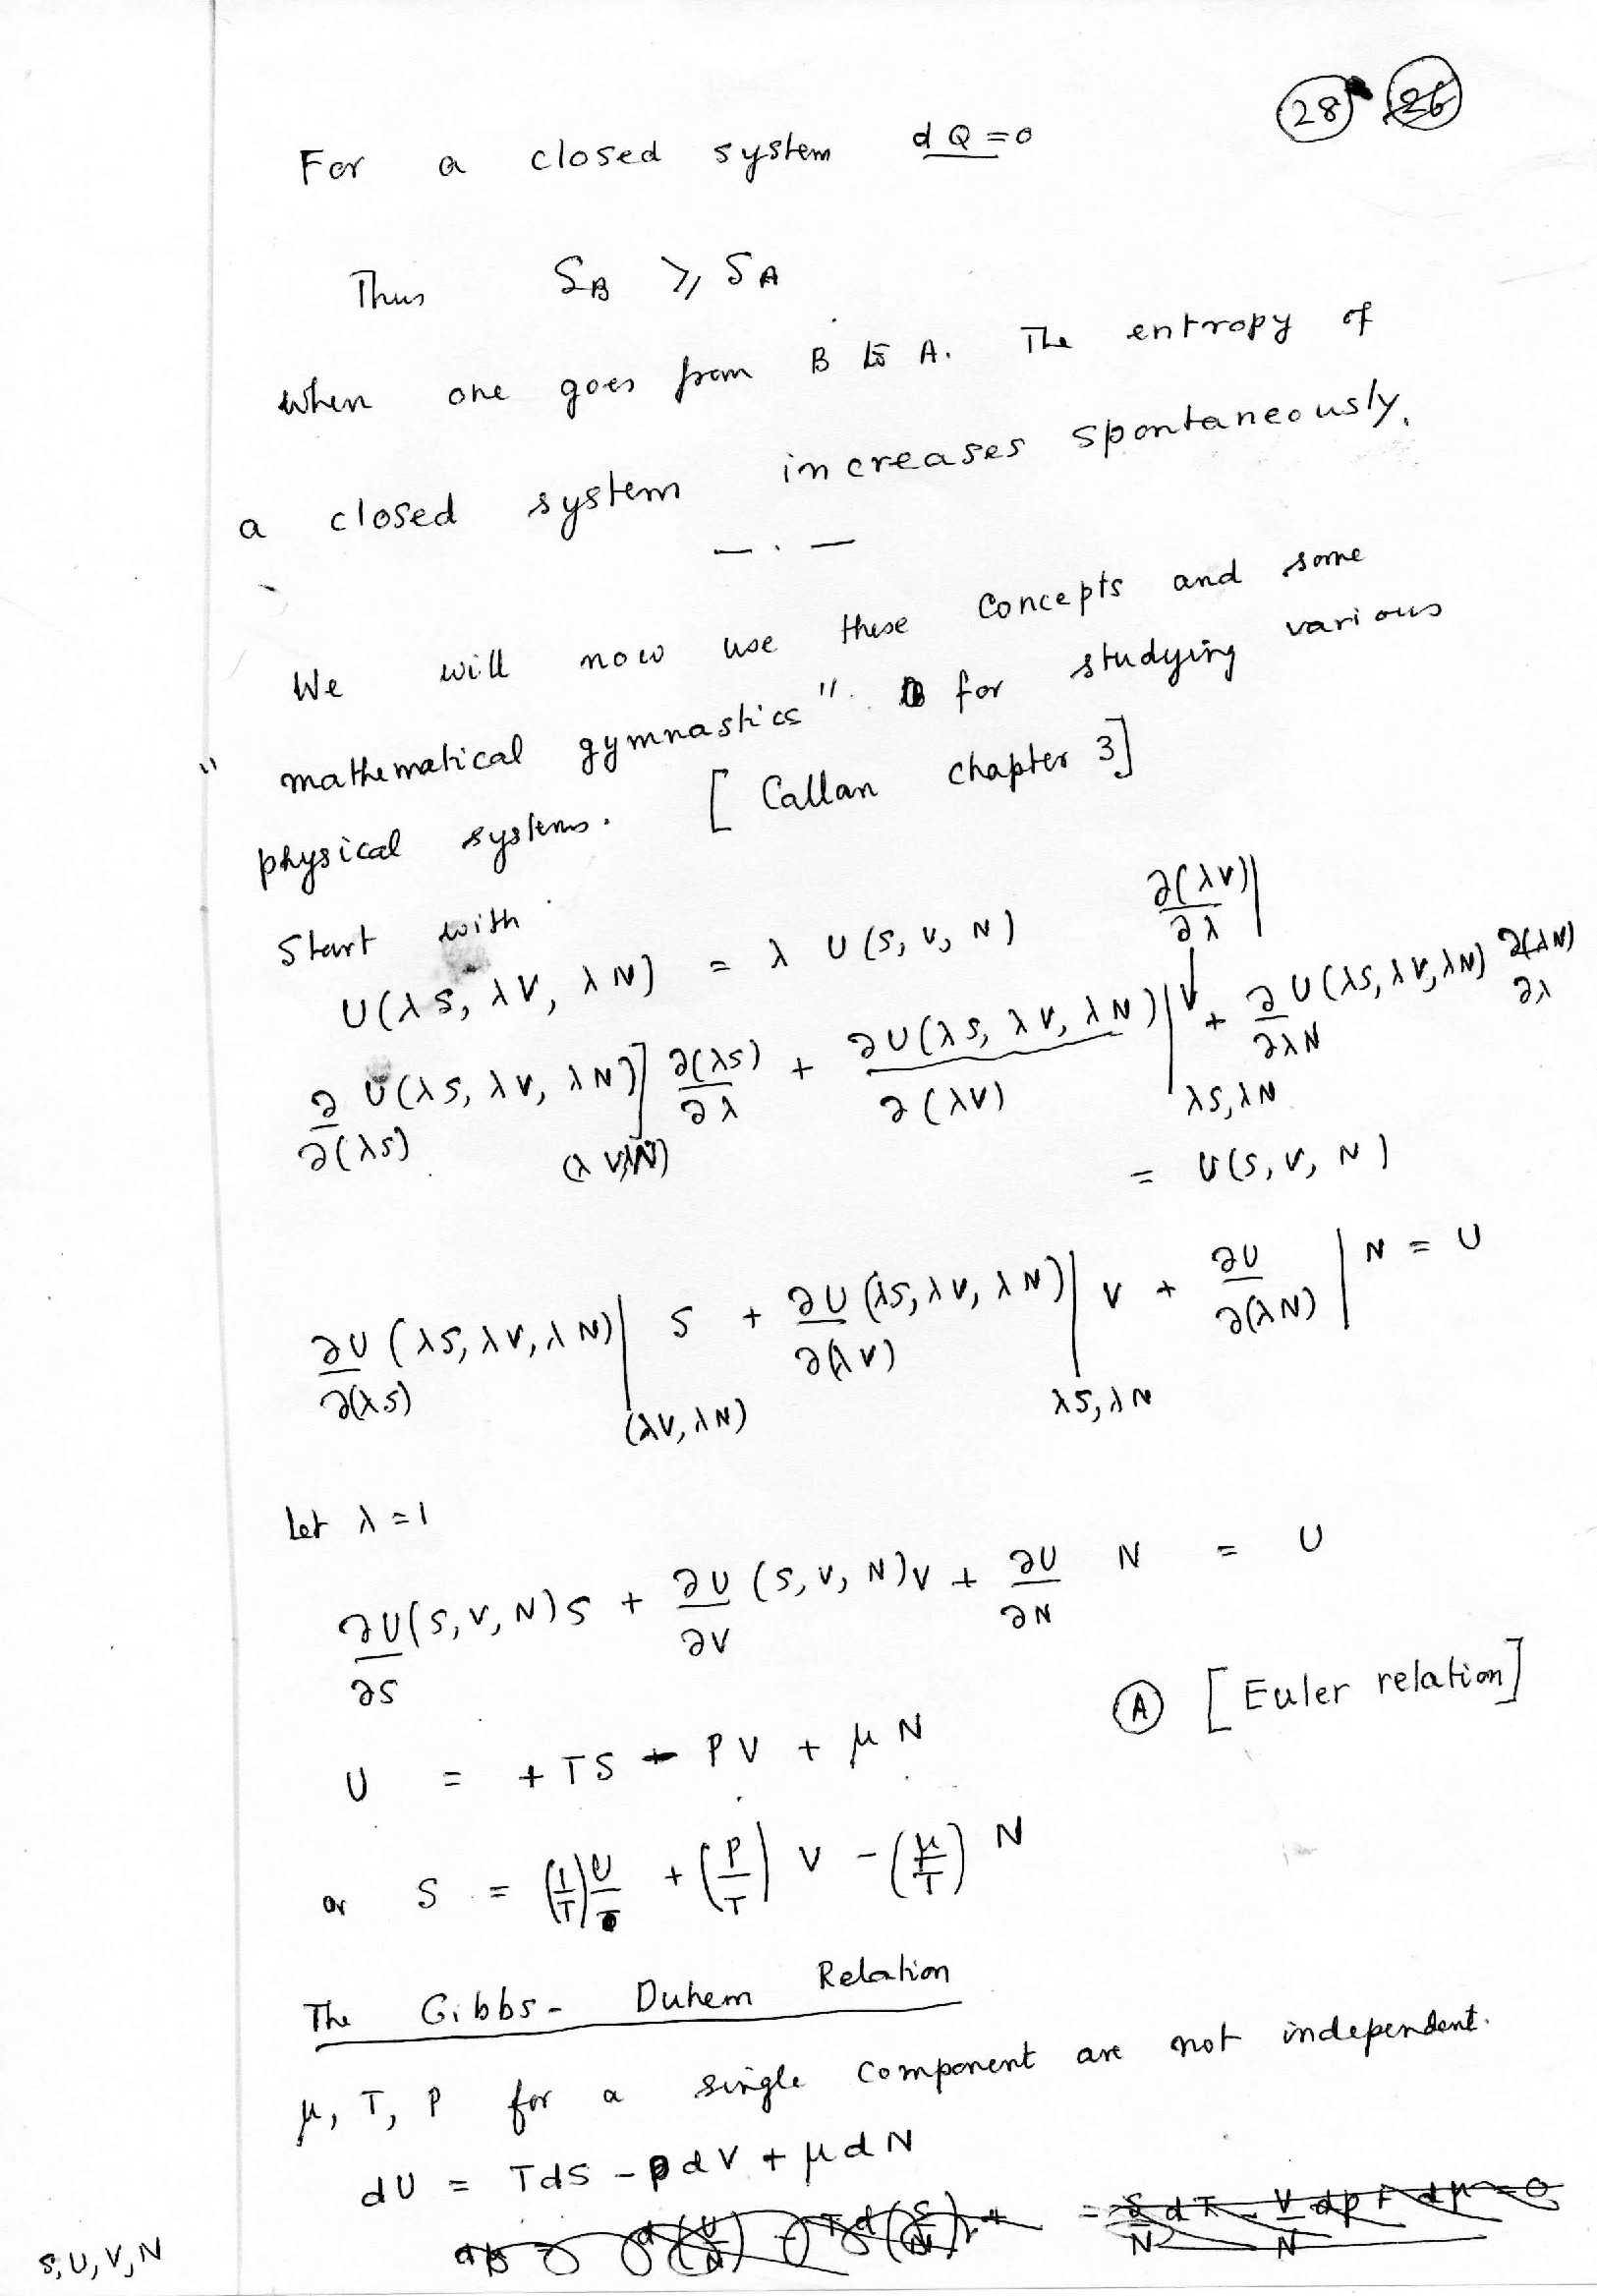 28 26
For a closed system dQ = 0
Thus S_B ⩾ S_A
when one goes from B to A. The entropy of
a closed system increases spontaneously.
— . —
We will now use these concepts and some
"mathematical gymnastics". for studying various
physical systems. [Callan chapter 3]
Start with
U(λS, λV, λN) = λ U(S, V, N) ∂(λV)/∂λ |
∂/∂(λS) U(λS, λV, λN)]_(λV, λN) ∂(λS)/∂λ + ∂U(λS, λV, λN)/∂(λV) |_λS, λN V + ∂/∂λN U(λS, λV, λN) ∂(λN)/∂λ
= U(S, V, N)
∂U/∂(λS) (λS, λV, λN) |_(λV, λN) S + ∂U/∂(λV) (λS, λV, λN) |_λS, λN V + ∂U/∂(λN) | N = U
Let λ = 1
∂U/∂S (S, V, N) S + ∂U/∂V (S, V, N) V + ∂U/∂N N = U
Ⓐ [Euler relation]
U = + TS - PV + μN
or S = (1/T) U + (P/T) V - (μ/T) N
The Gibbs-Duhem Relation
μ, T, P for a single component are not independent.
dU = TdS - PdV + μdN
= S/N dT - V/N dp + dμ = 0
S, U, V, N